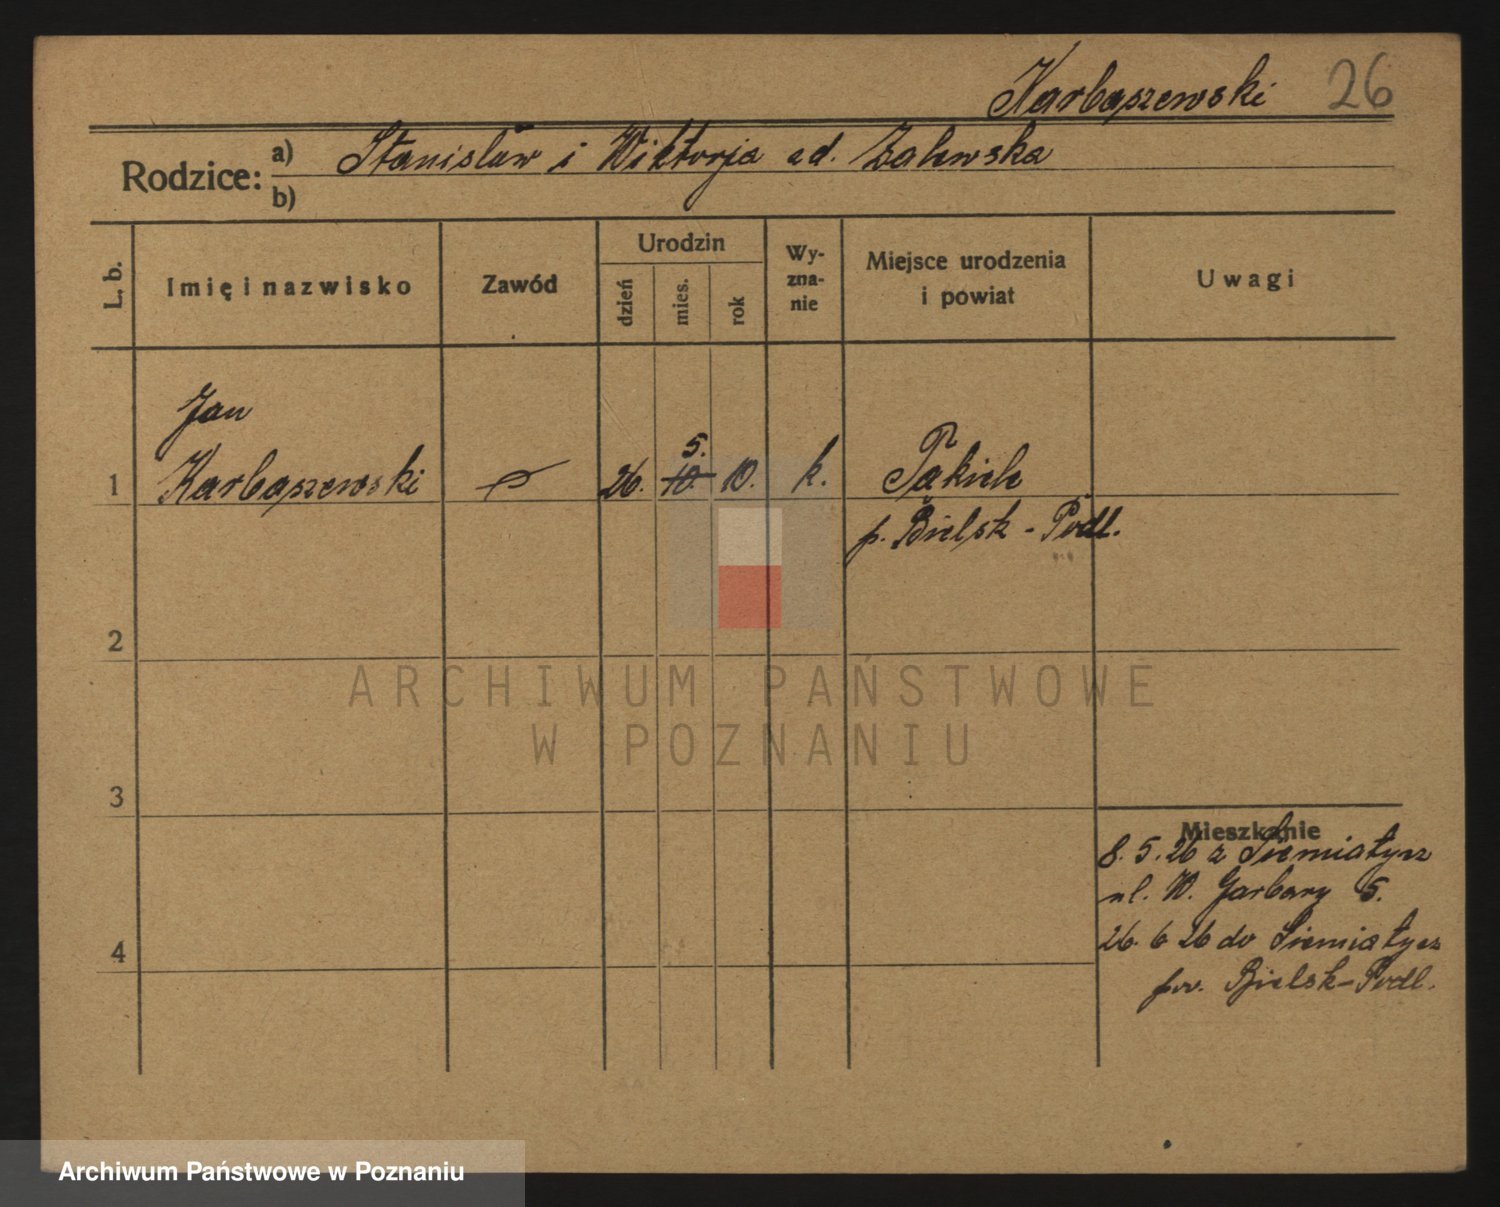 Karbaszewski 26
Rodzice: a) Stanisław i Wiktorja ad. Zalewska
b)
L. b. Imię i nazwisko Zawód Urodzin dzień mies. rok Wyznanie Miejsce urodzenia i powiat Uwagi
Jan
5.
1 Karbaszewski 26. 10. 10. k. Pakiele
p. Bielsk - Podl.
2
ARCHIWUM PAŃSTWOWE
W POZNANIU
3
Mieszkanie
8. 5. 26 z Siemiatycz
ul. W. Garbary 5.
4 26. 6 26 do Siemiatycz
pow. Bielsk-Podl.
Archiwum Państwowe w Poznaniu